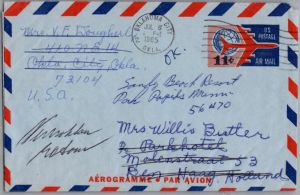 Mrs. V. F. Dougherty
410 N.E. 14
Okla. City, Okla.
73104
U.S.A.
OKLAHOMA CITY
JUL 6
PM
1965
OKLA.
U.S.
POSTAGE
AIR MAIL
11¢
OK.
Sandy Beach Resort
Park Rapids Minn.
56470
Mrs Willis Butler
Parkhotel
Molenstraat 53
Den Haag Holland
retour
AÉROGRAMME • PAR AVION